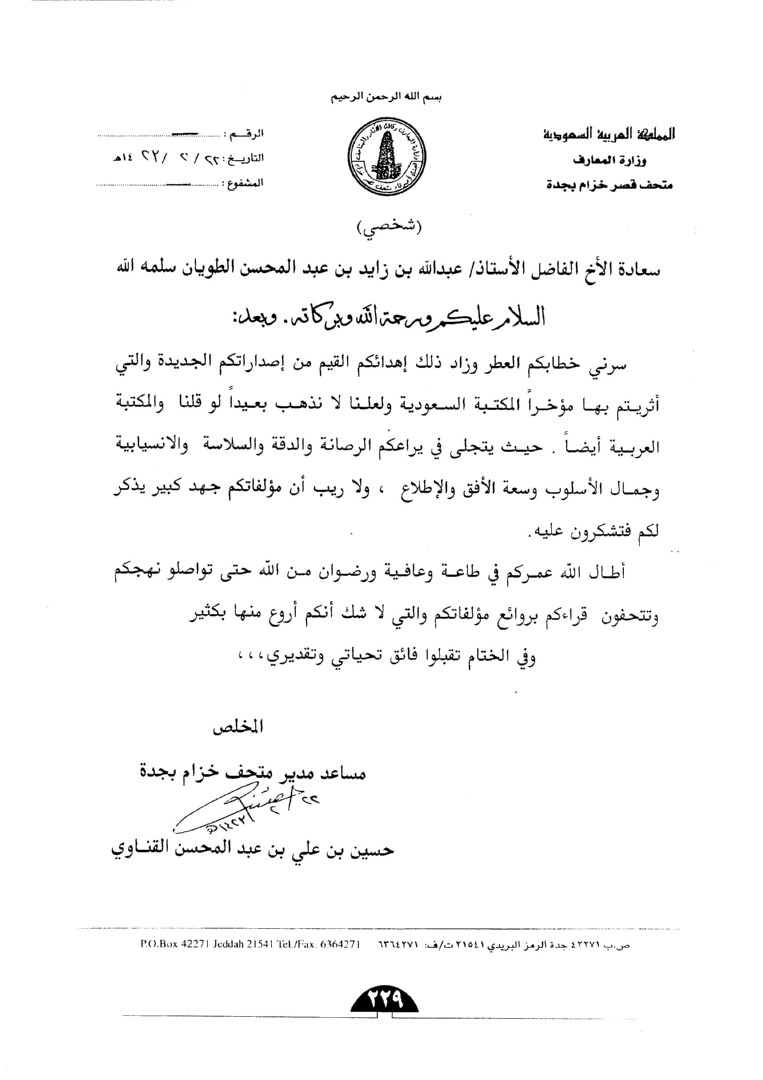 بسم الله الرحمن الرحيم
المملكة العربية السعودية
وزارة المعارف
متحف قصر خزام بجدة
الرقـم :
التاريخ : ٢٢ / ٢ / ١٤٢٢هـ
المشفوع :
(شخصي)
سعادة الأخ الفاضل الأستاذ/ عبدالله بن زايد بن عبد المحسن الطويان سلمه الله
السلام عليكم ورحمة الله وبركاته . وبعد:
سرني خطابكم العطر وزاد ذلك إهدائكم القيم من إصداراتكم الجديدة والتي
أثريتم بها مؤخراً المكتبة السعودية ولعلنا لا نذهب بعيداً لو قلنا والمكتبة
العربية أيضاً . حيث يتجلى في يراعكم الرصانة والدقة والسلاسة والانسيابية
وجمال الأسلوب وسعة الأفق والإطلاع ، ولا ريب أن مؤلفاتكم جهد كبير يذكر
لكم فتشكرون عليه.
أطال الله عمركم في طاعة وعافية ورضوان من الله حتى تواصلو نهجكم
وتتحفون قراءكم بروائع مؤلفاتكم والتي لا شك أنكم أروع منها بكثير
وفي الختام تقبلوا فائق تحياتي وتقديري،،،
المخلص
مساعد مدير متحف خزام بجدة
٢٢
٢
١٤٢٢هـ
حسين بن علي بن عبد المحسن القناوي
ص.ب ٤٢٢٧١ جدة الرمز البريدي ٢١٥٤١ ت/ف: ٦٣٦٤٢٧١ P.O.Box 42271 Jeddah 21541 Tel./Fax. 6364271
٢٢٩